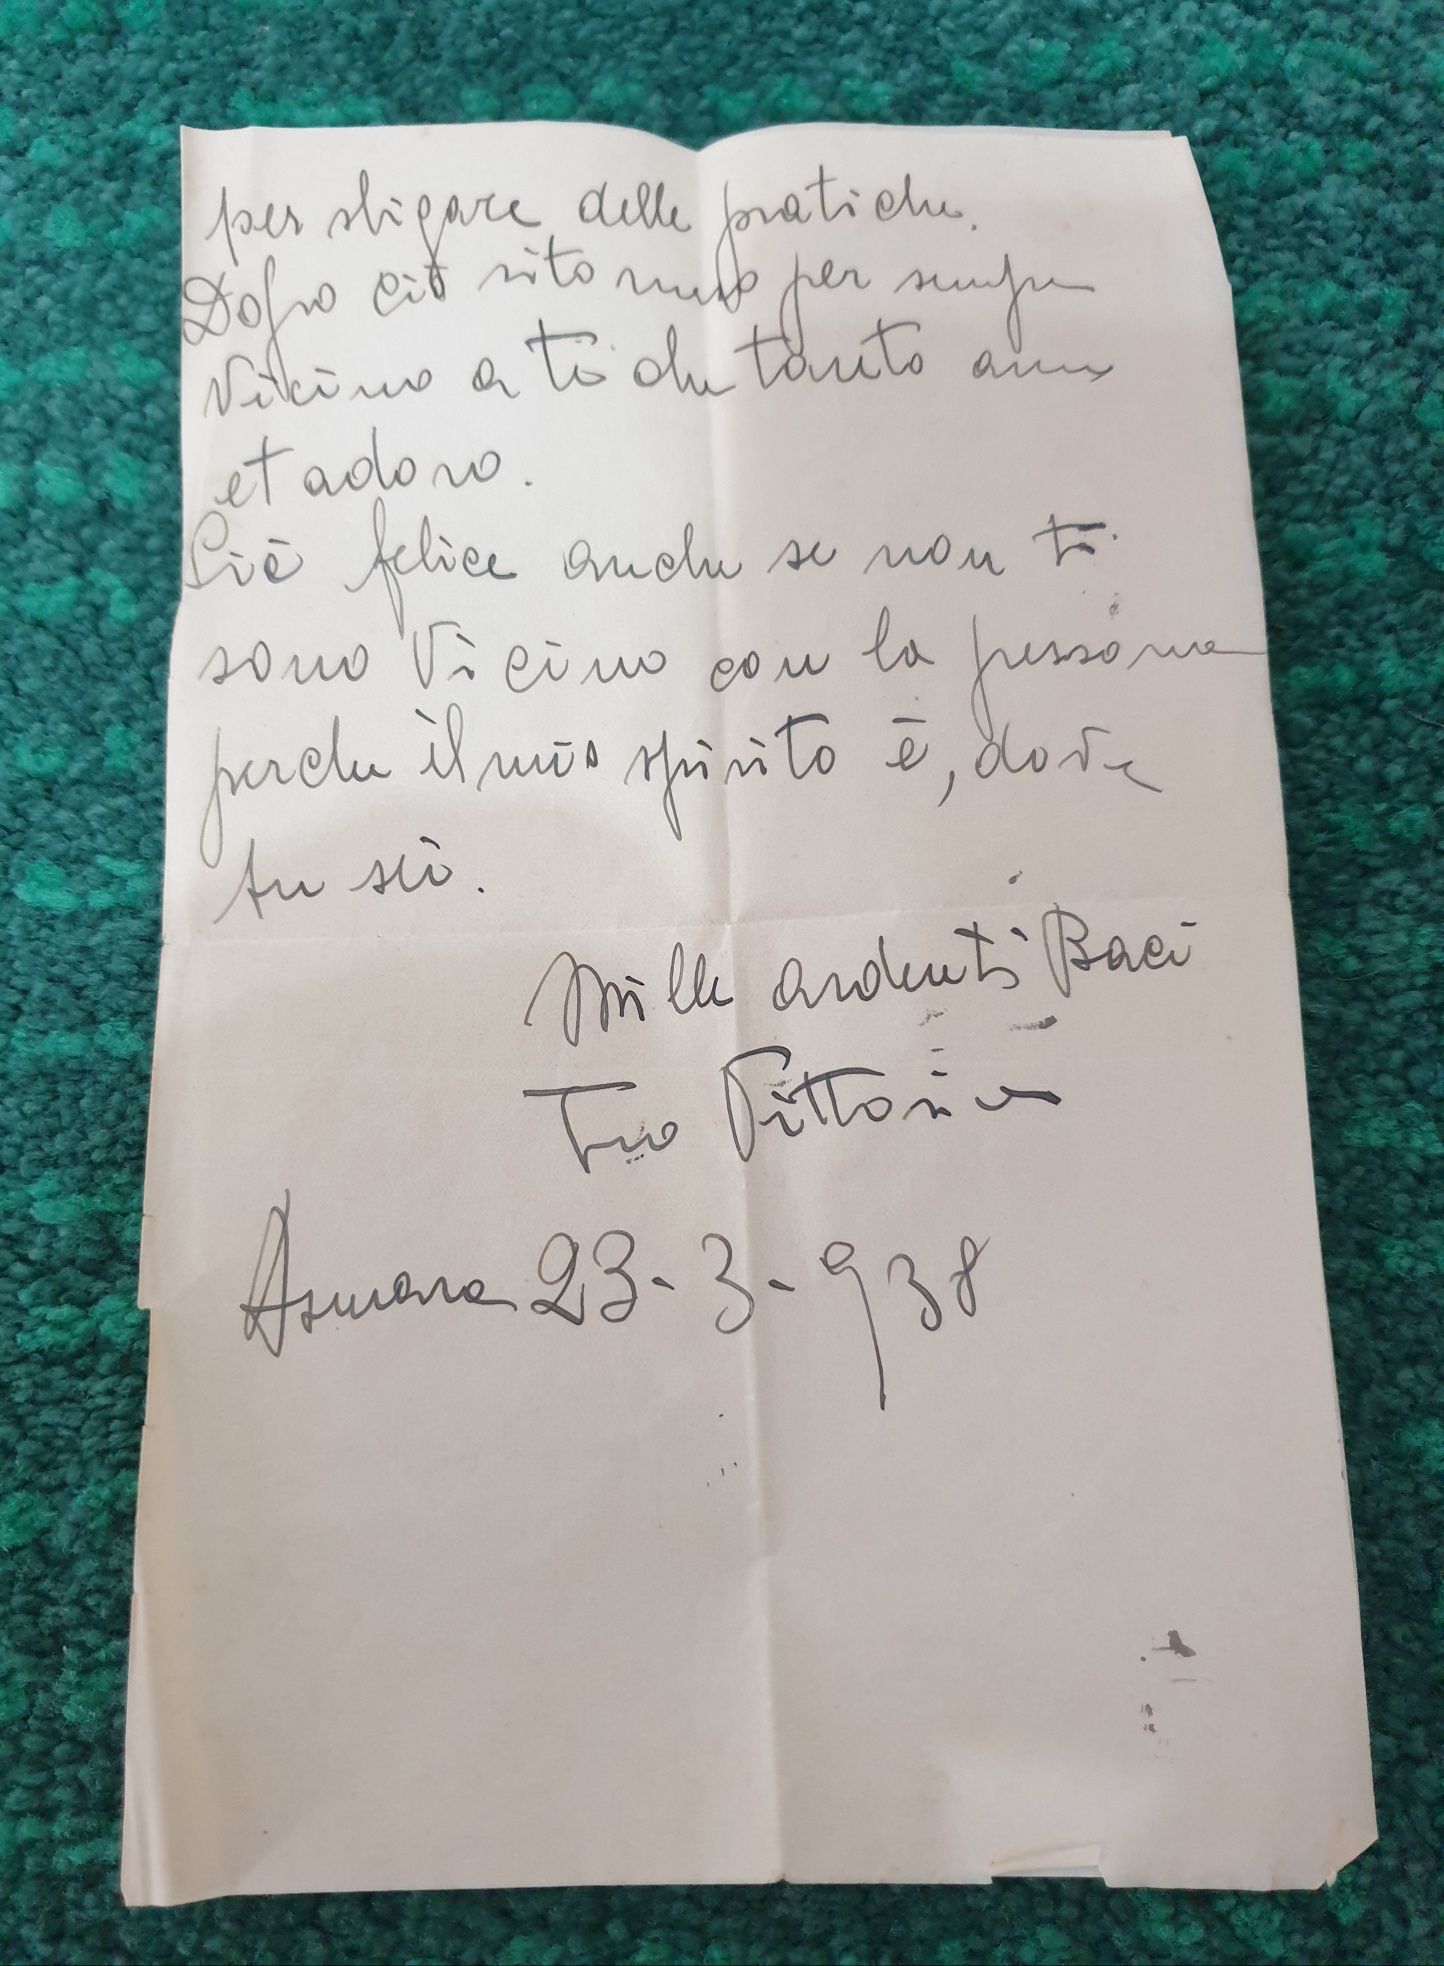 per sbigare delle pratiche.
Dopo ciò ritorno per sempre
vicino a te che tanto amo
et adoro.
Sii felice anche se non ti
sono vicino con la persona
perche il mio spirito è, dove
tu sei.
Mille ardenti Baci
Tuo Vittorio
Asmara 23-3-938